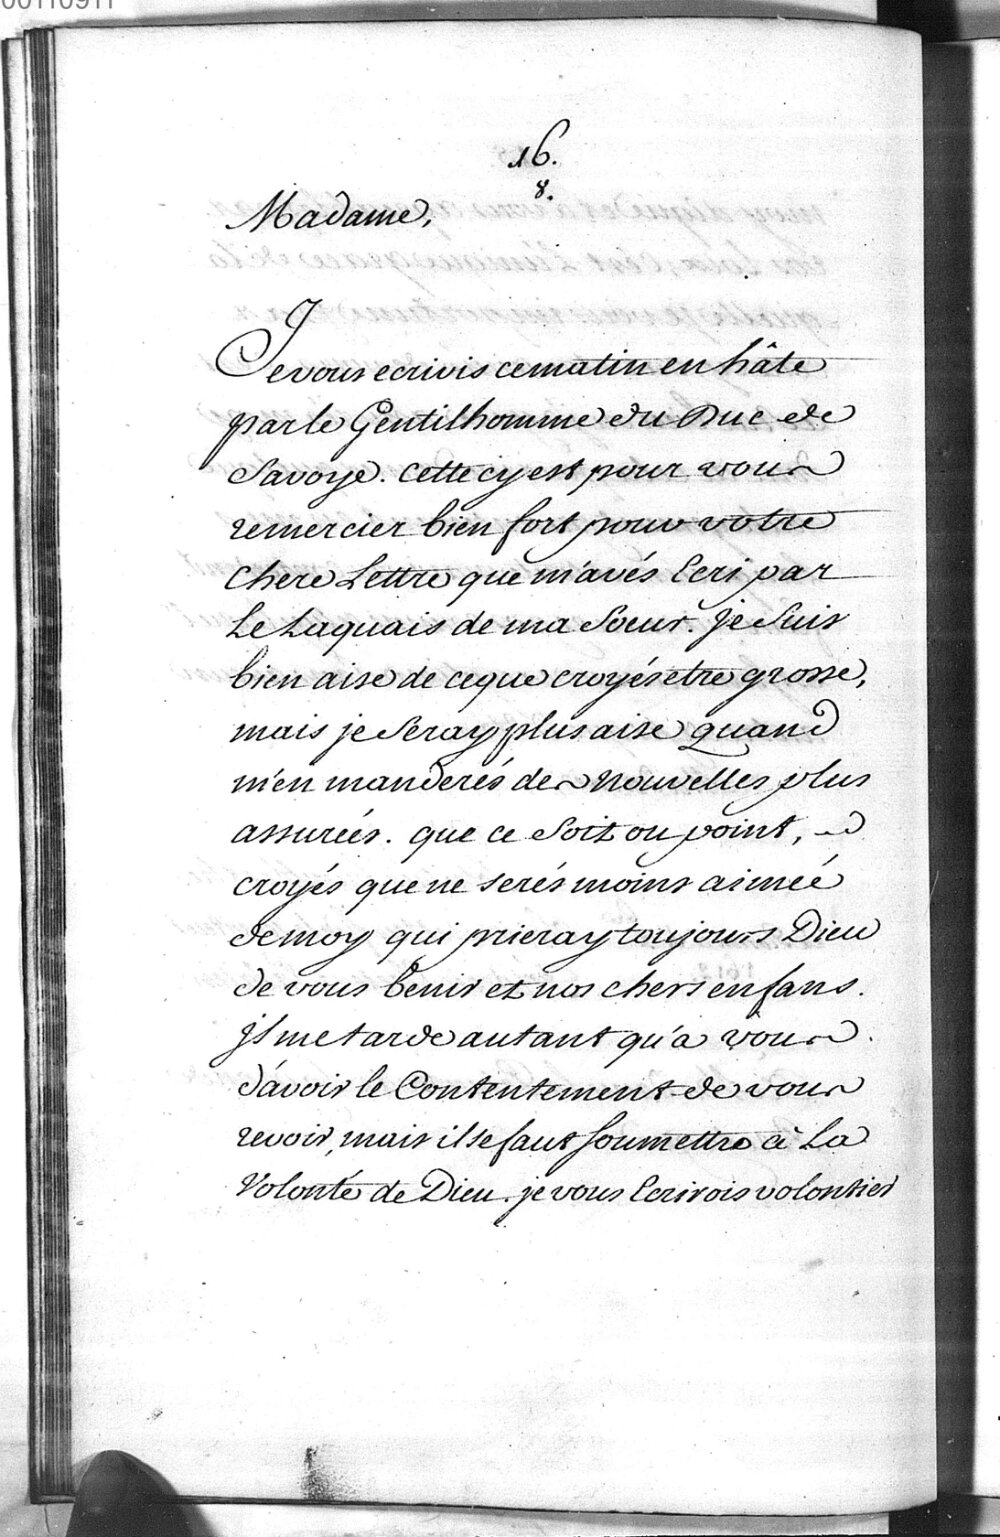 00110911
16.
8.
Madame,
Je vous ecrivis ce matin en hâte
par le Gentilhomme du Duc de
Savoye. cette cy est pour vous
remercier bien fort pour votre
chere Lettre que m'avés Ecri par
Le Laquais de ma Soeur. Je Suis
bien aise de ce que croyés etre grosse,
mais je Seray plus aise quand
m'en manderés des nouvelles plus
assurées. que ce Soit ou point,
croyés que ne serés moins aimée
de moy qui prieray toujours Dieu
de vous benir et nos chers enfans.
jl me tarde autant qu'a vous.
d'avoir le Contentement de vous
revoir, mais il se faut soumettre à La
Volonté de Dieu. je vous Ecrirois volontier